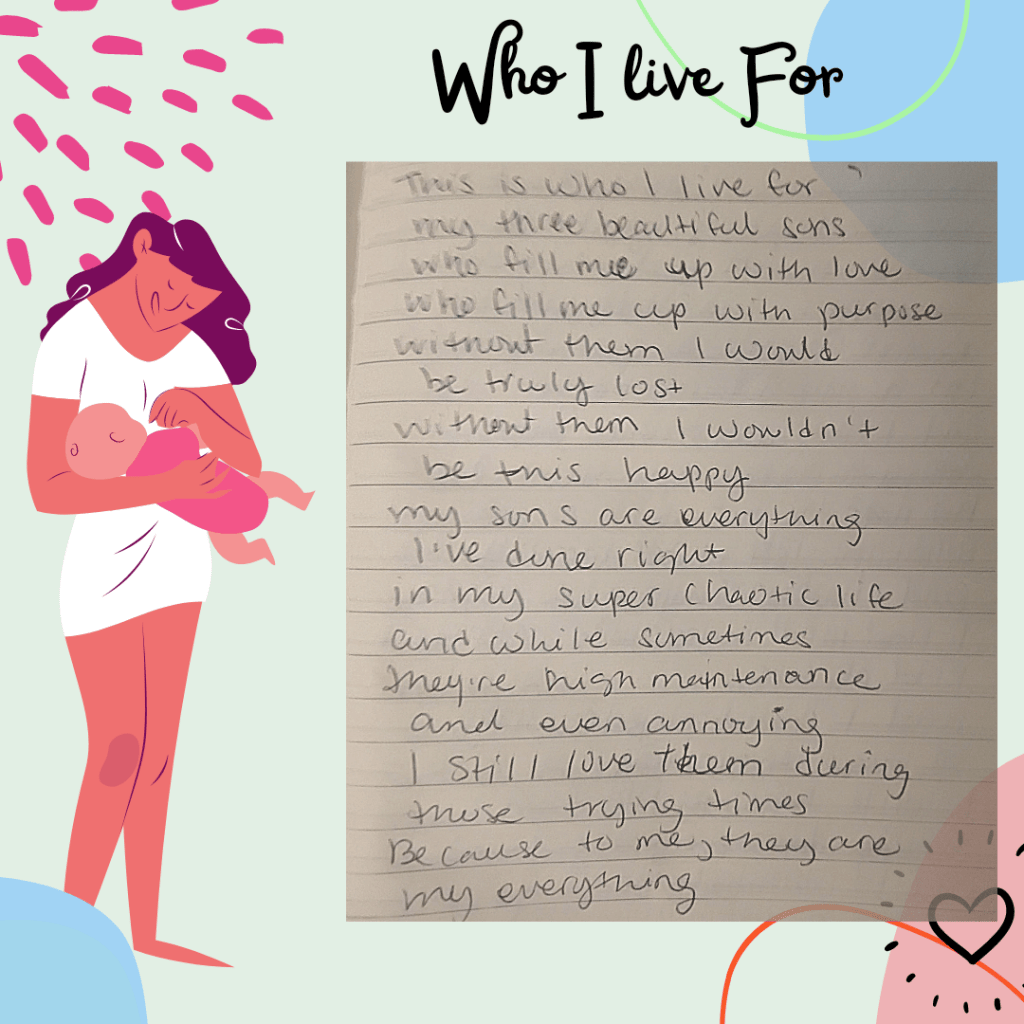 Who I live For
This is who I live for
my three beautiful sons
who fill me up with love
who fill me up with purpose
without them I would
be truly lost
without them I wouldn't
be this happy
my sons are everything
I've done right
in my super chaotic life
and while sometimes
they're high maintenance
and even annoying
I still love them during
those trying times
Because to me, they are
my everything